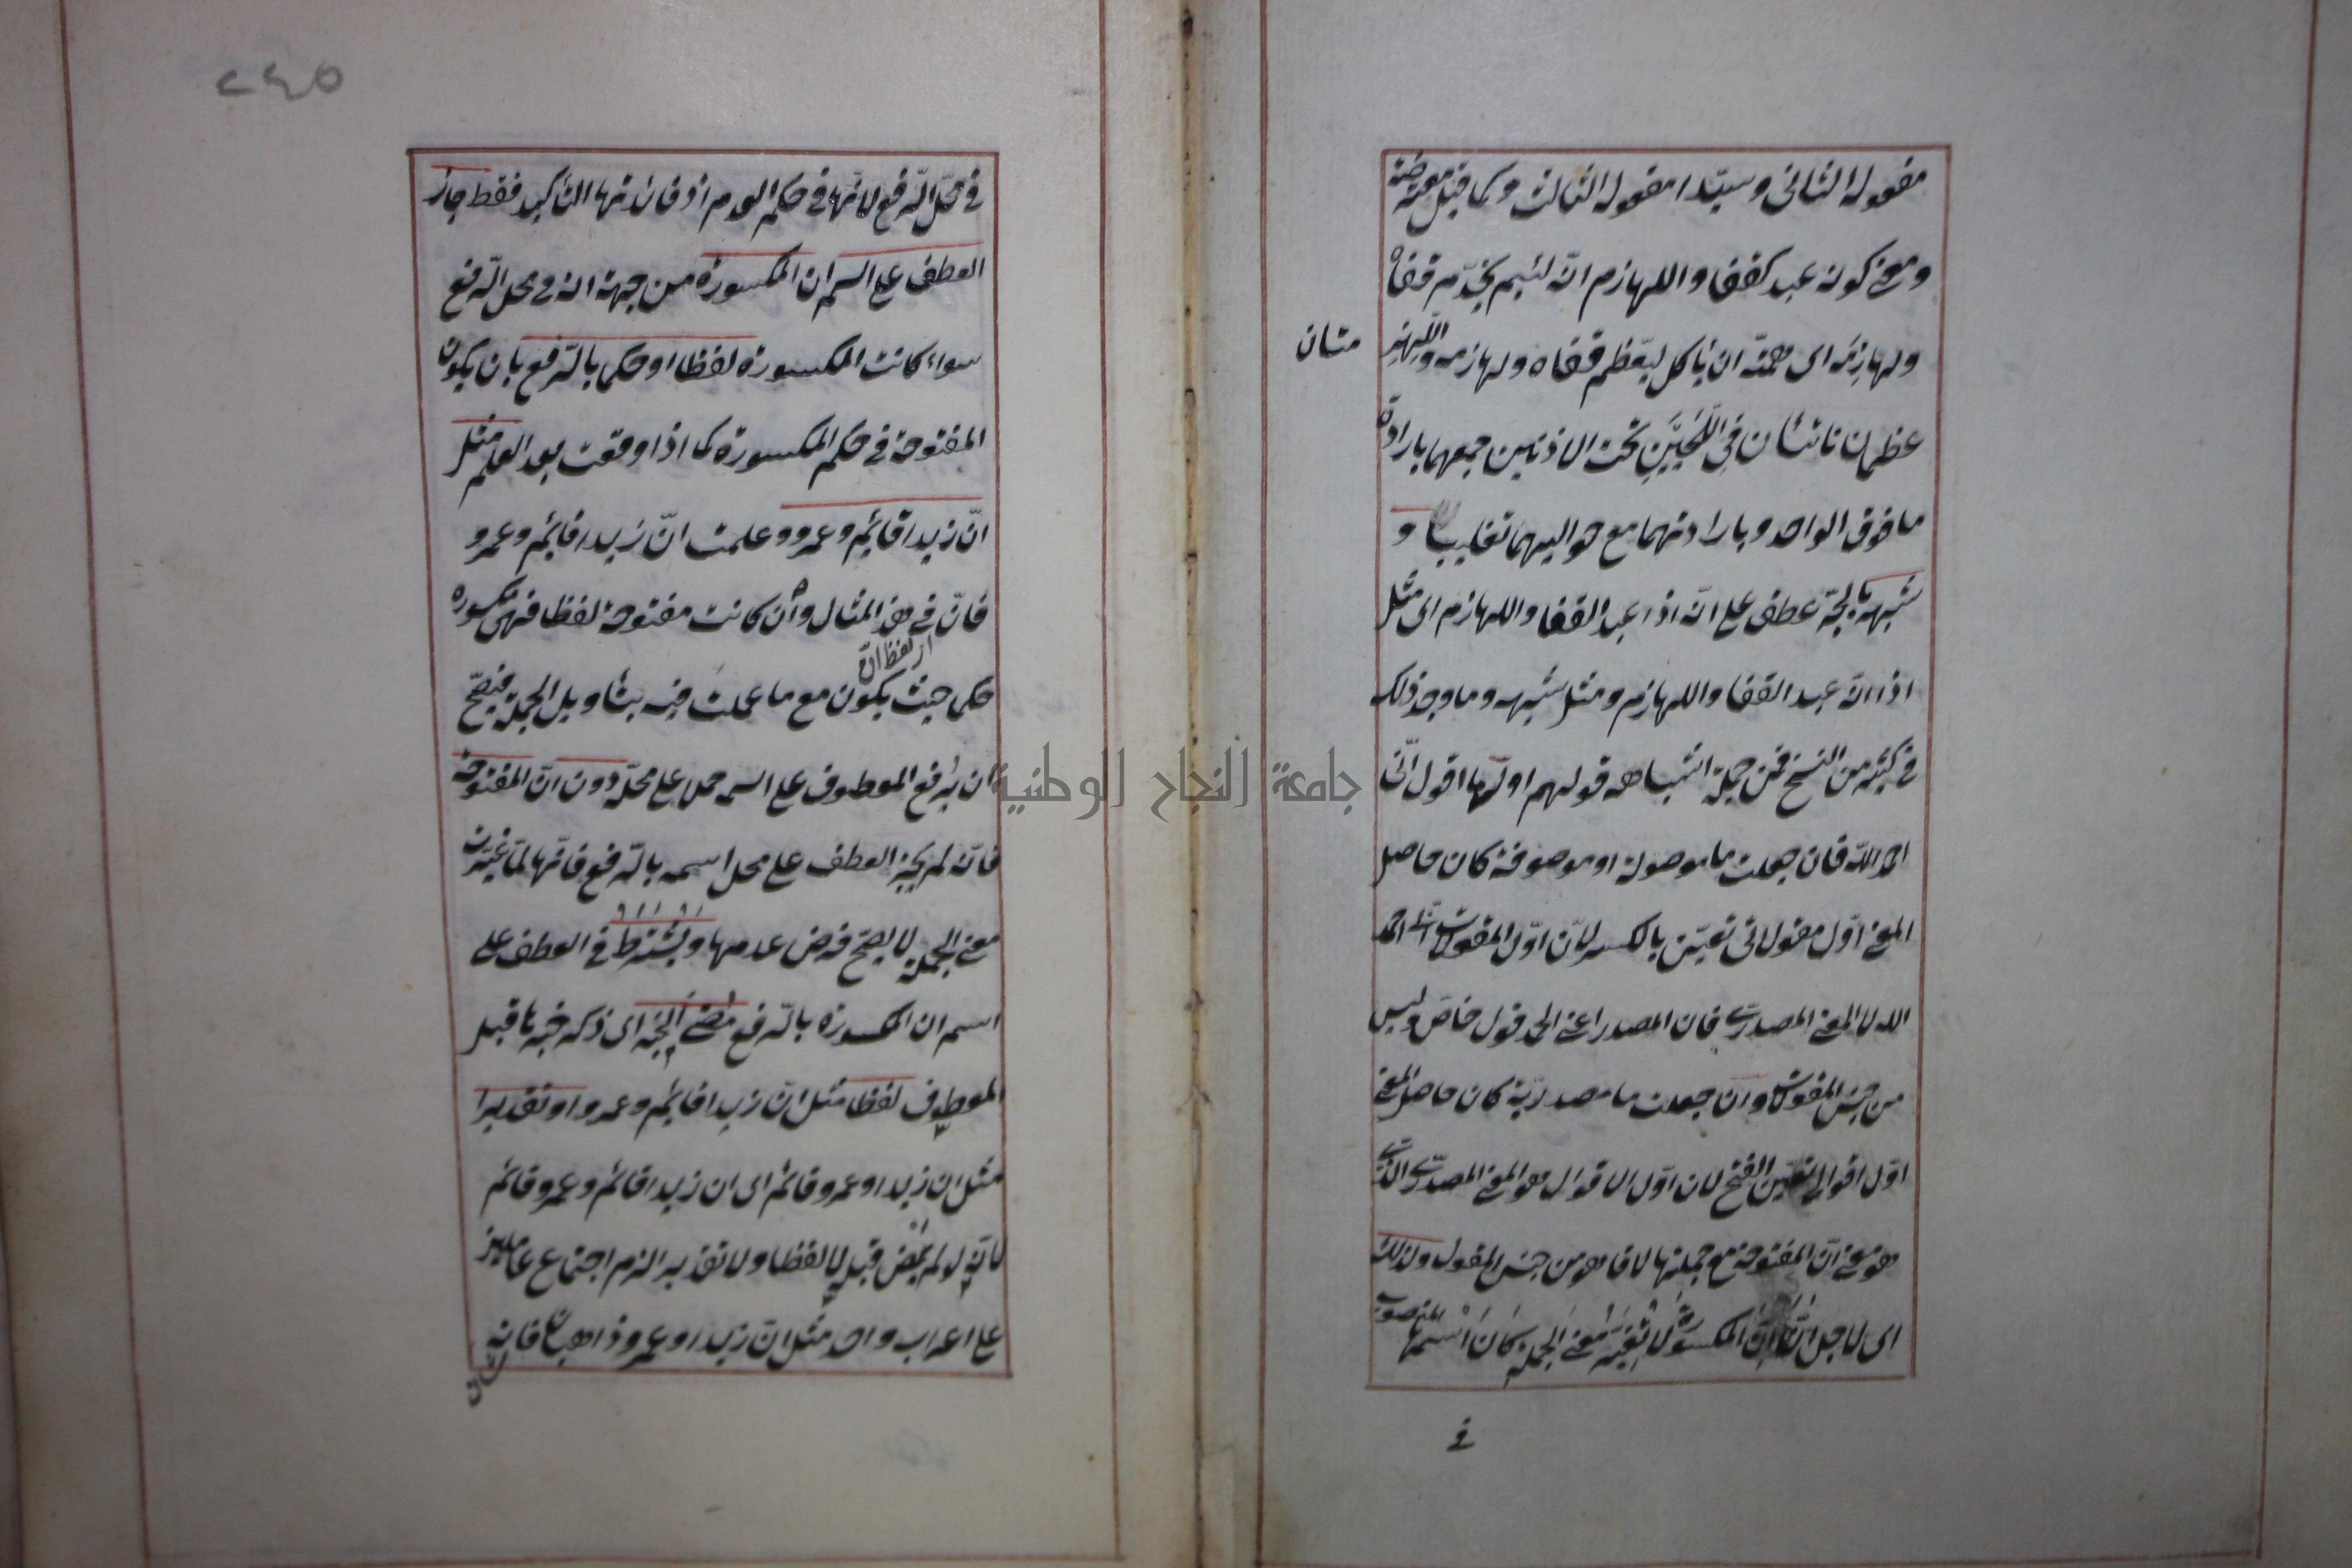 مفعوله الثانى وسيّدا مفعوله الثالث وكما قيل معترضة
ومعنى كونه عبد القفا واللهازم انّه لئيم يخدّم قفاه
ولهازمه اى همّته ان يأكل ليعظم قفاه ولهازمه واللّهزمتان
عظمان ناتئان فِى اللَّحْيَيْنِ تحت الاذنين جمعهما بارادة
ما فوق الواحد وبارادتهما مع حواليهما تغليبا و
شبهه بالجرّ عطف على انّه اذا عبد القفا واللهازم اى مثل
اذا انّه عبد القفا واللهازم ومثل شبهه وما وجد ذلك
فى كثير من النسخ فمن جملة اشباهه قولهم اوّل ما اقول انّى
احمد اللّه فان جعلت ما موصولة او موصوفة كان حاصل
المعنى اوّل مقولاتى تعيّن بالكسر لانّ اوّل المقولات انّى احمد
الله لا المعنى المصدرىّ فان المصدر اعنى الحمد قول خاصّ وليس
من جنس المقولات وان جعلت ما مصدريّة كان حاصل المعنى
اوّل اقوالى تعيّن الفتح لان اوّل الاقوال هو المعنى المصدرىّ الذى
هو معنى انّ المفتوحة مع جملتها لا ما هو من جنس المقول ولذلك
اى لاجل انّ انّ المكسورة لا تغيّر معنى الجملة كان اسمها المنصوب
فى
٢٤٥
فى محلّ الرّفع لانّها فى حكم العدم اذ فائدتها التأكيد فقط جاز
العطف على اسم ان المكسورة من جهة انه فى محل الرّفع
سواء كانت المكسورة لفظا او حكما بالرّفع بان يكون
المفتوحة فى حكم المكسورة كما اذا وقعت بعد العلم مثل
انّ زيدا قائم وعمرو وعلمت انّ زيدا قائم وعمرو
فانّ فى هذا المثال وان كانت مفتوحة لفظا فهى مكسورة
اى لفظ انّ
حكما حيث يكون مع ما عملت فيه بتأويل الجملة فيصحّ
ان يرفع المعطوف على اسمه حملا على محلّه دون انّ المفتوحة
فانّه لم يجز العطف على محل اسمه بالرّفع فانّها لمّا غيّرت
معنى الجملة لا يصحّ فرض عدمها ويُشْتَرَطُ فى العطف على
اسم ان المكسورة بالرّفع مضىّ الخبر اى ذكر خبرها قبل
المعطوف لفظا مثل انّ زيدا قائم وعمرو او تقديرا
مثل ان زيدا وعمرو قائم اى ان زيدا قائم وعمرو قائم
لانّه لو لم يمض قبله لا لفظا ولا تقديرا لزم اجتماع عاملين
على اعراب واحد مثل انّ زيدا وعمرو ذاهبان فانه
جامعة النجاح الوطنية